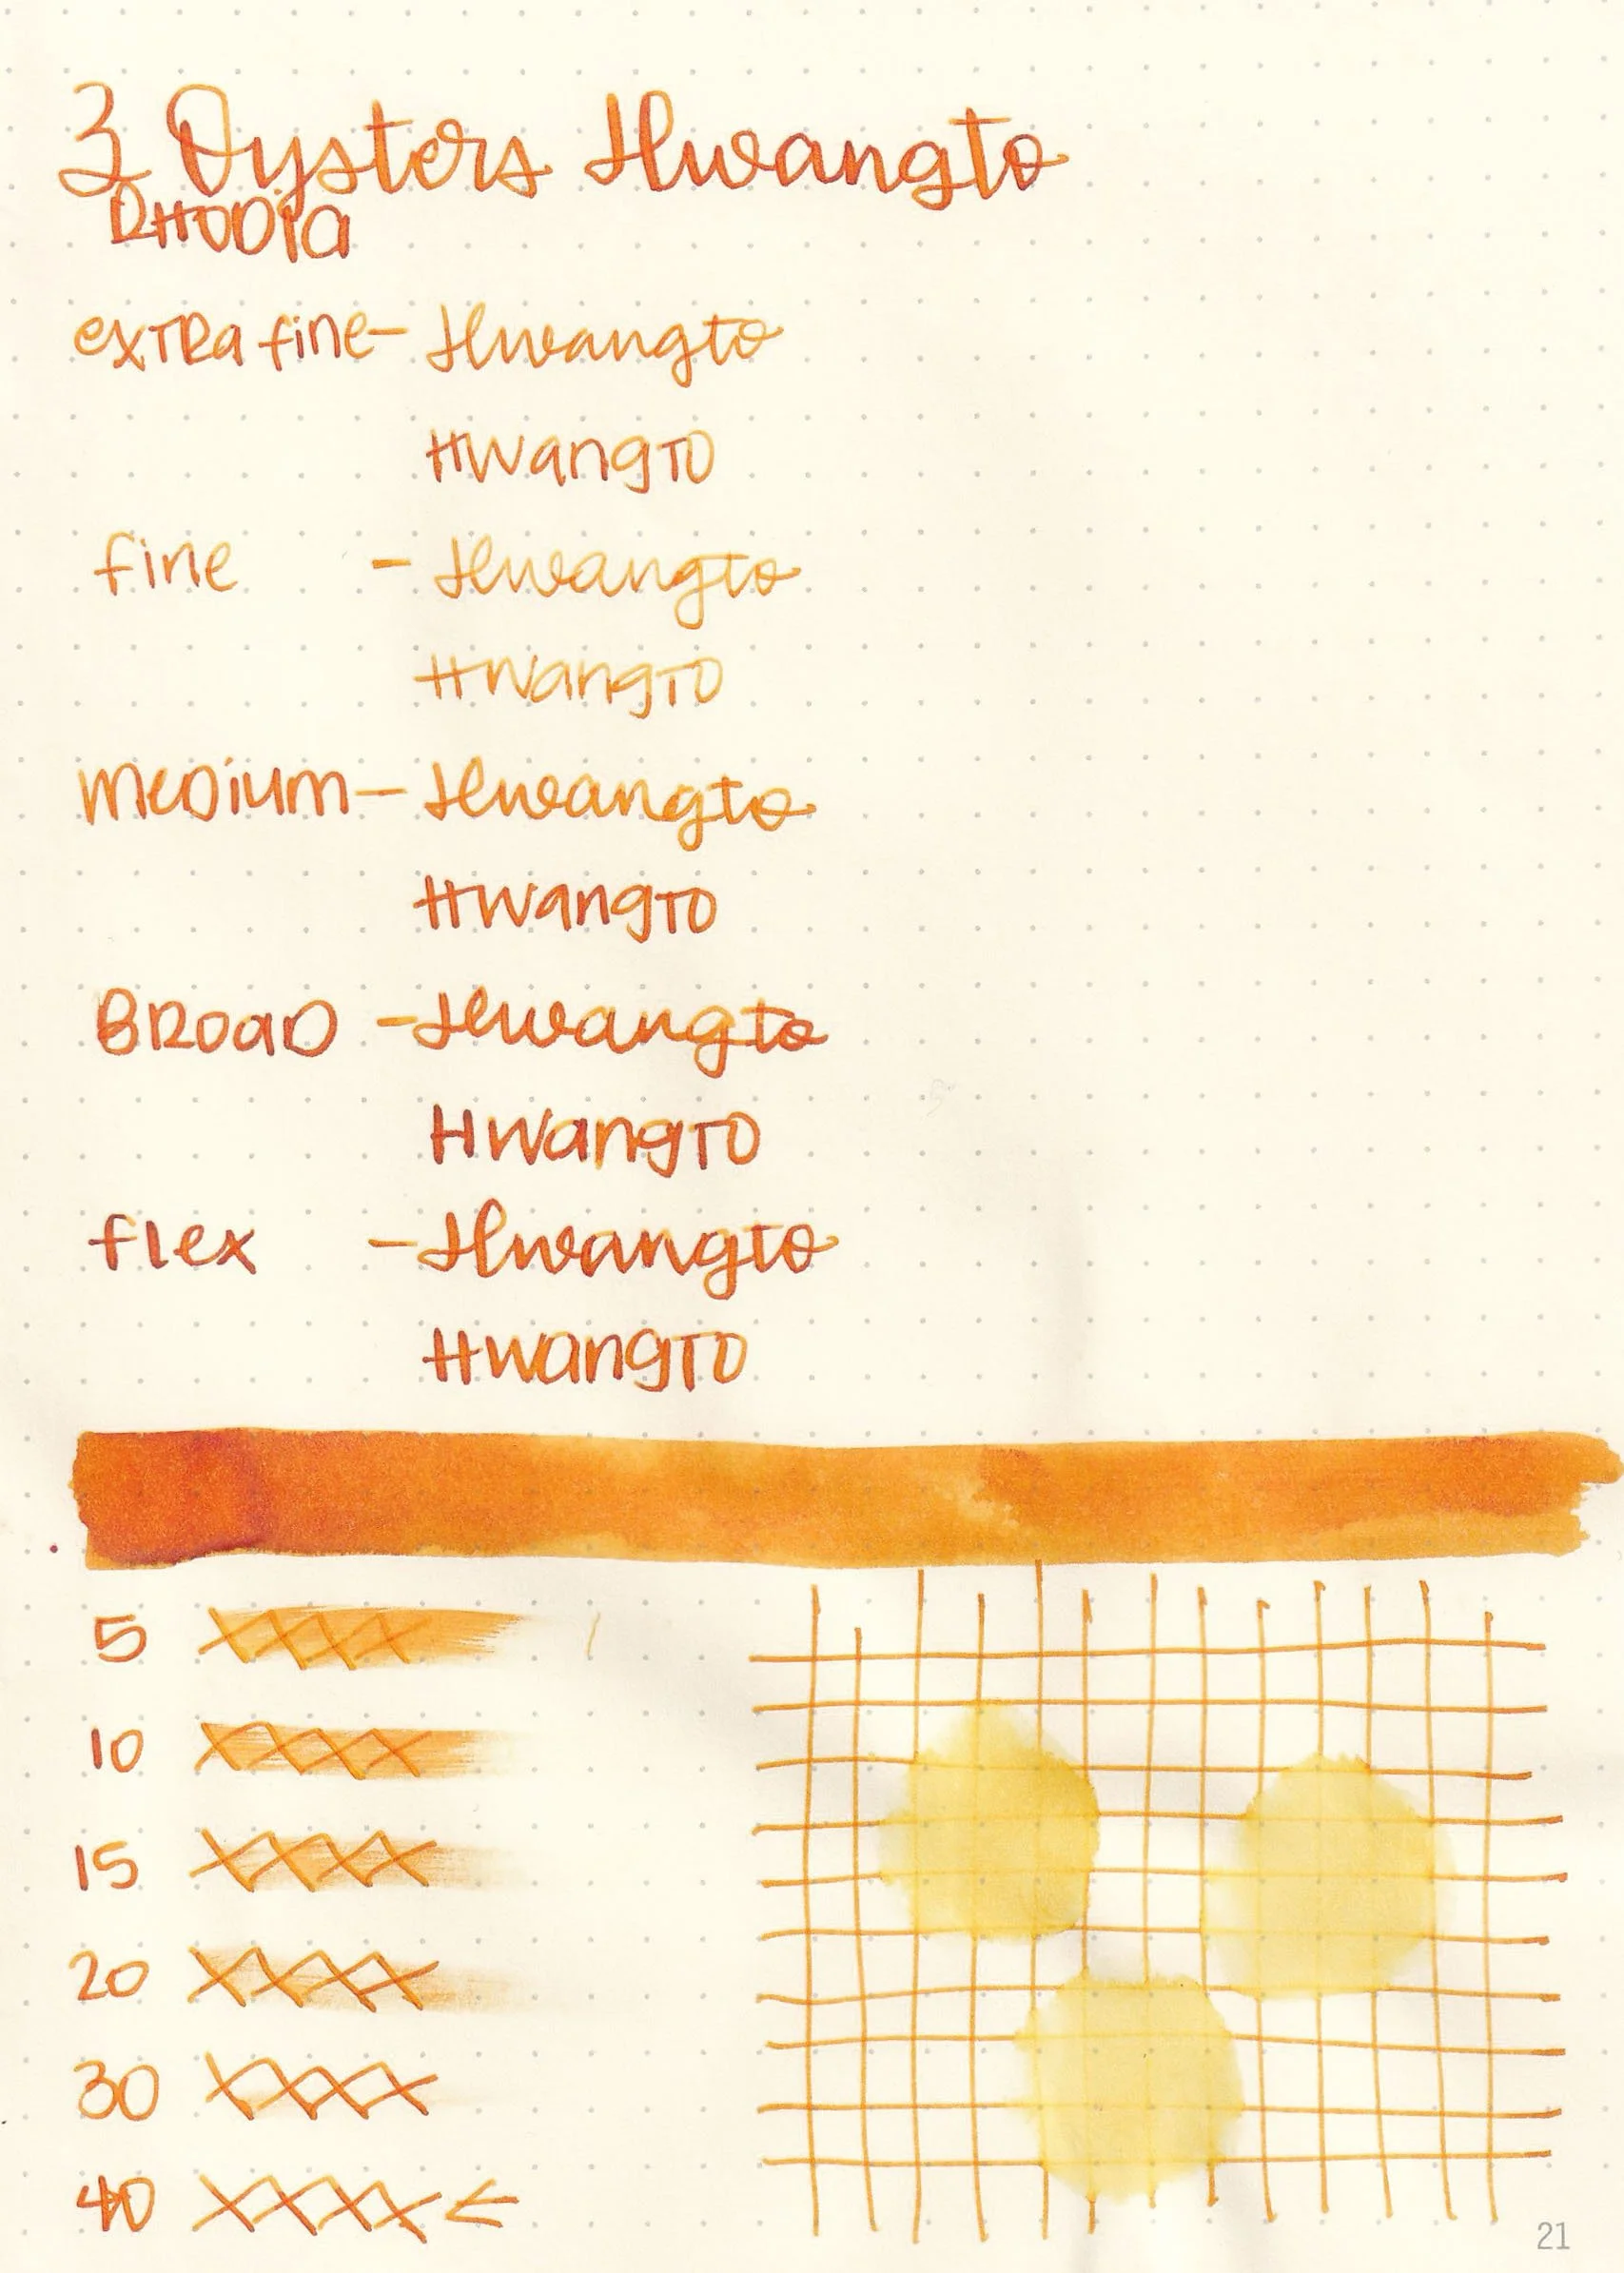 3 Oysters Hwangto
RHODIA
extra fine - Hwangto
Hwangto
fine - Hwangto
Hwangto
medium - Hwangto
Hwangto
Broad - Hwangto
Hwangto
flex - Hwangto
Hwangto
5
10
15
20
30
40
21